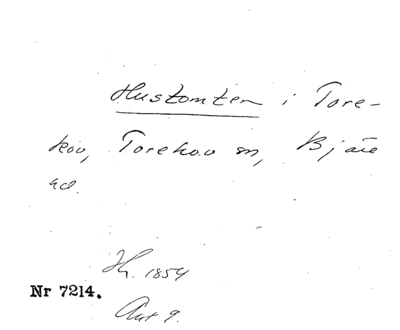 Hustomten i Tore-
kov, Torekov sn, Bjäre
hd.
Jh. 1854
Nr 7214.
Avt 9.